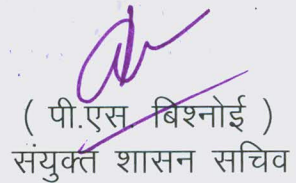 ( पी.एस. बिश्नोई )
संयुक्त शासन सचिव